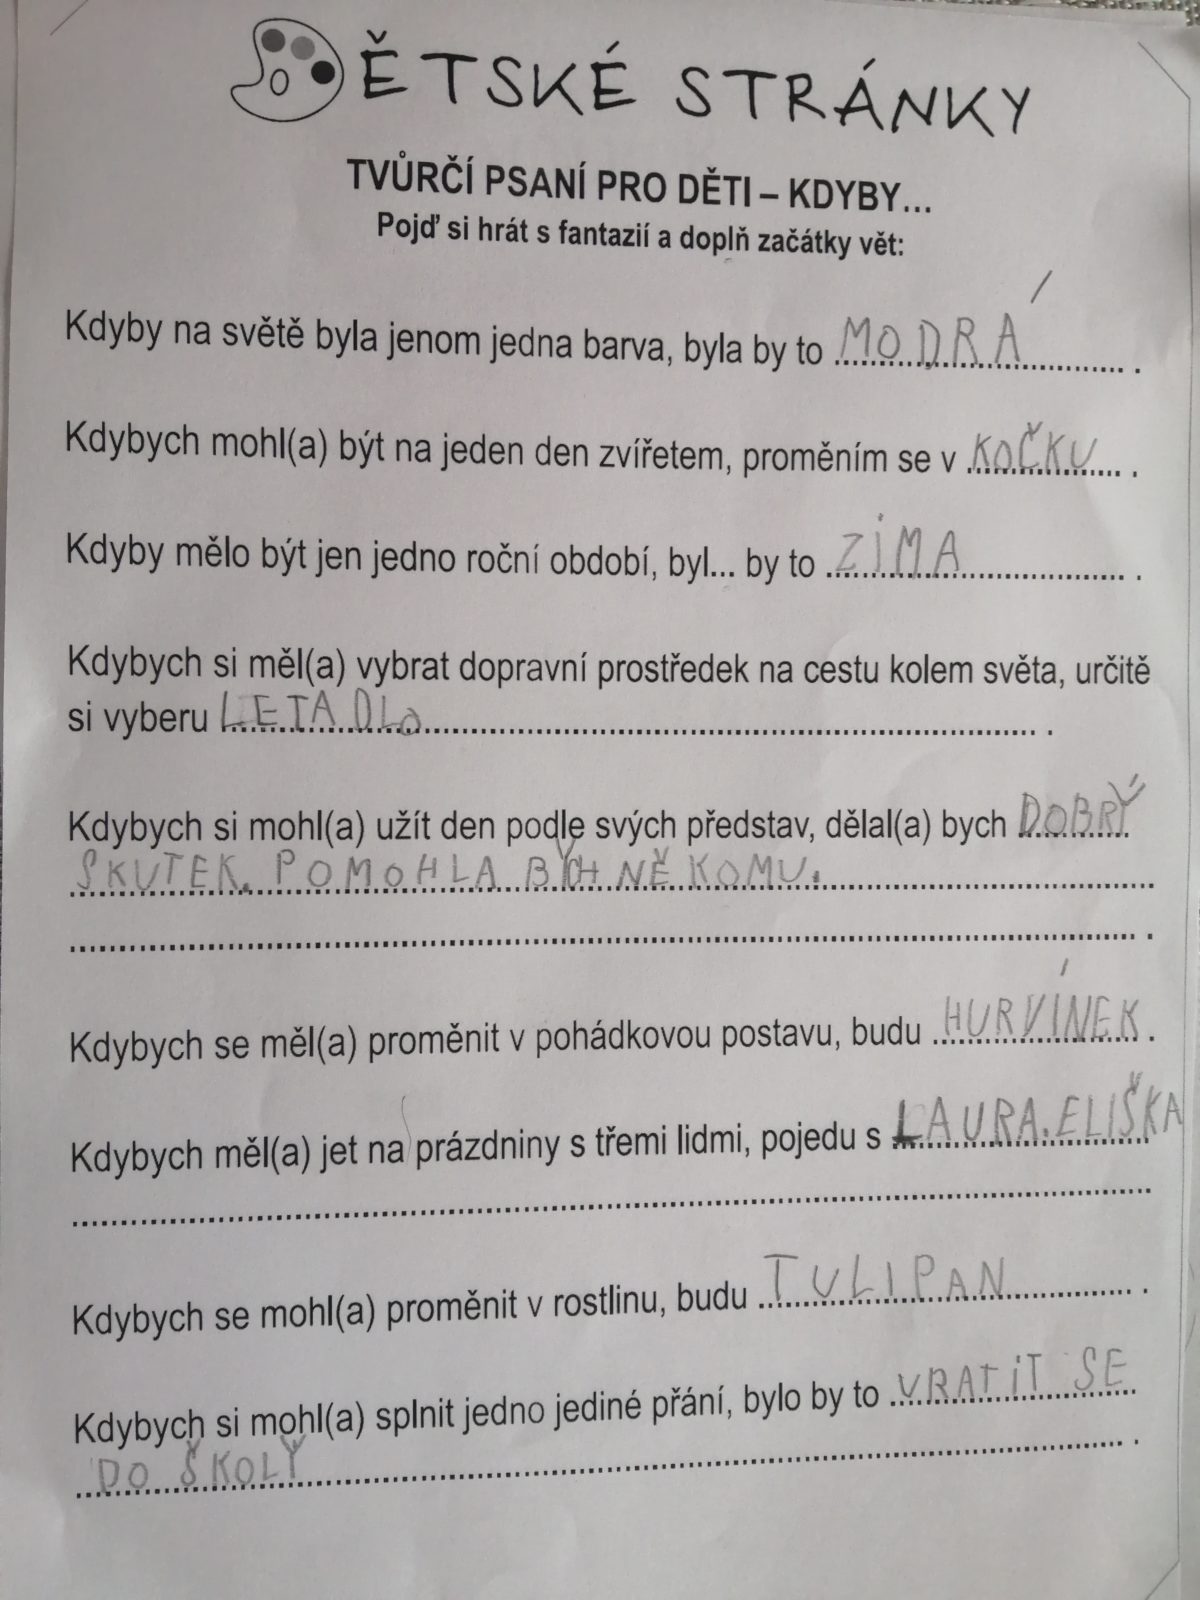 DĚTSKÉ STRÁNKY
TVŮRČÍ PSANÍ PRO DĚTI – KDYBY...
Pojď si hrát s fantazií a doplň začátky vět:
Kdyby na světě byla jenom jedna barva, byla by to MODRÁ.
Kdybych mohl(a) být na jeden den zvířetem, proměním se v KOČKU.
Kdyby mělo být jen jedno roční období, byl... by to ZIMA.
Kdybych si měl(a) vybrat dopravní prostředek na cestu kolem světa, určitě
si vyberu LETADLo.
Kdybych si mohl(a) užít den podle svých představ, dělal(a) bych DOBRÝ
SKUTEK. POMOHLA BYCH NĚKOMU.
Kdybych se měl(a) proměnit v pohádkovou postavu, budu HURVÍNEK.
Kdybych měl(a) jet na prázdniny s třemi lidmi, pojedu s LAURA. ELIŠKA
Kdybych se mohl(a) proměnit v rostlinu, budu TULIPAN.
Kdybych si mohl(a) splnit jedno jediné přání, bylo by to VRATiT SE
DO ŠKOLY.